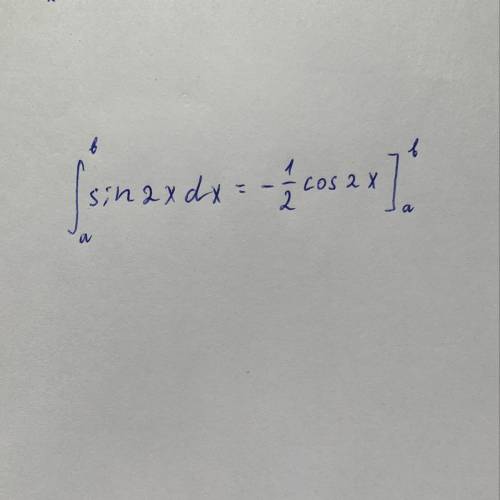 ∫_a^b sin2xdx = -1/2 cos2x]_a^b